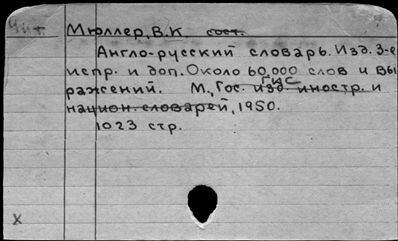 Чит Мюллер, В.К. сост.
Англо-русский словарь. Изд. 3-е
испр. и доп. Около 60.000 слов и вы
ражений. М, Гос. изд. иностр. и
ГИС
национ. словарей, 1950.
1023 стр.
X